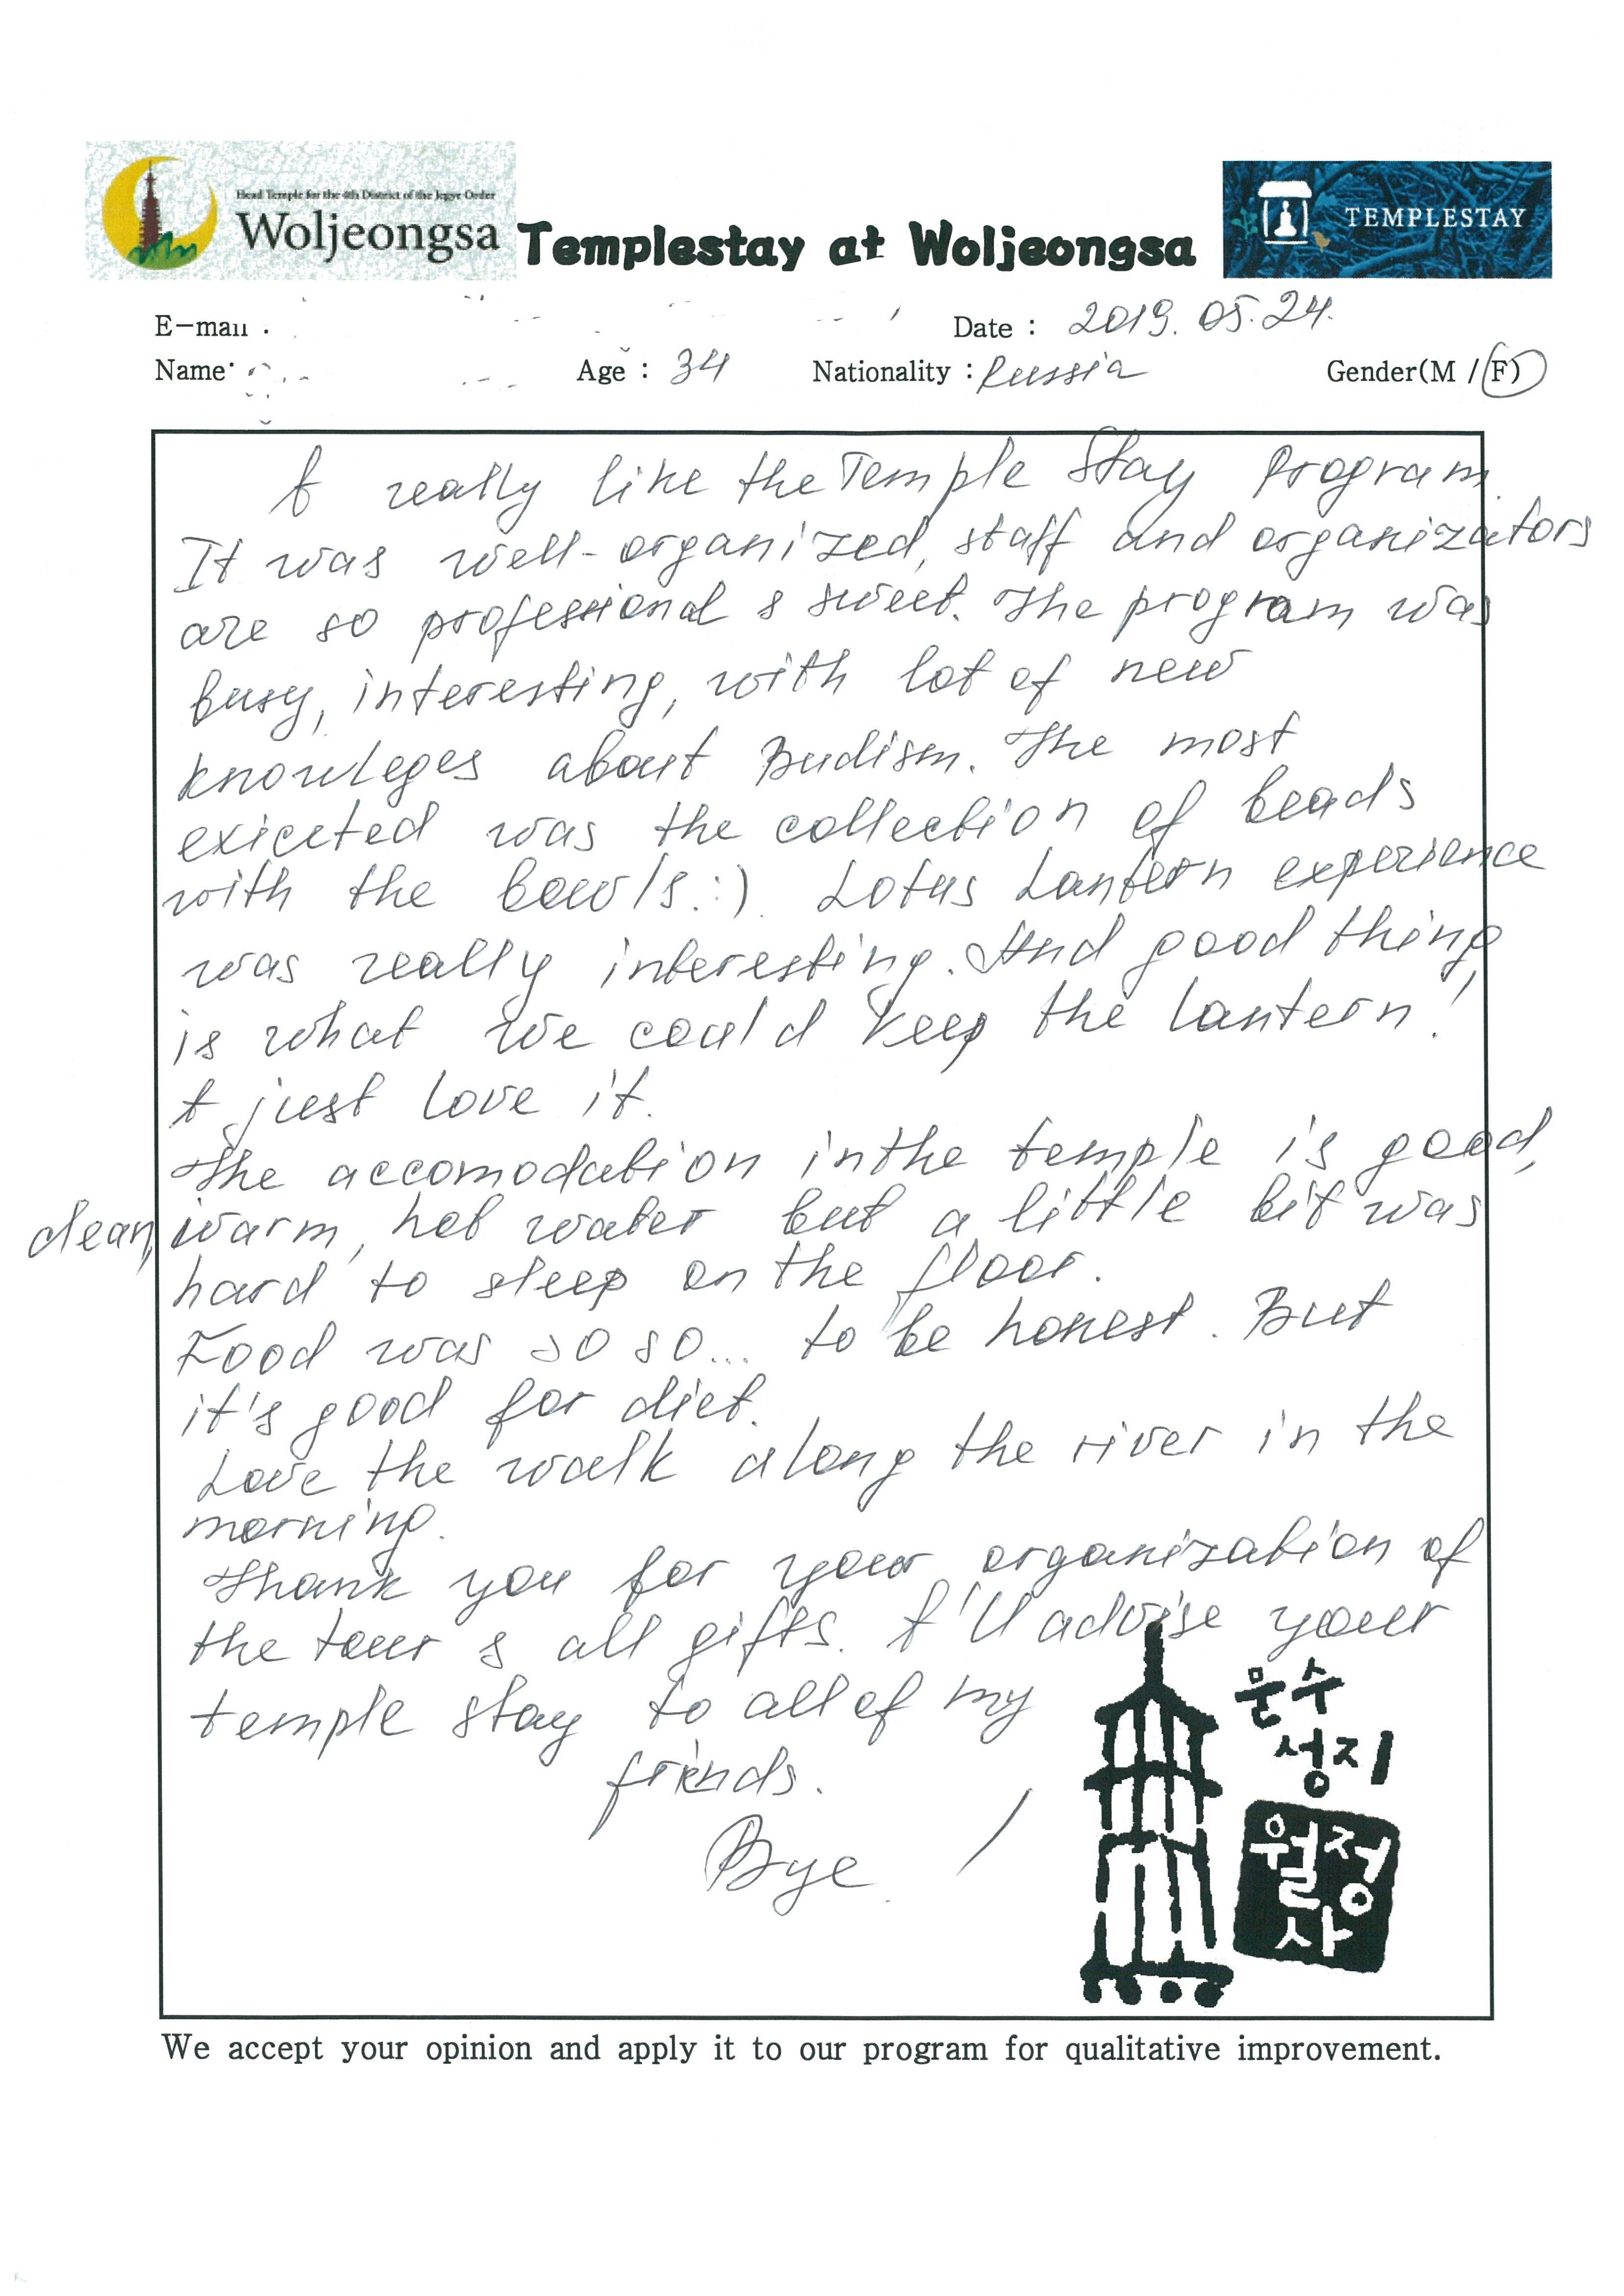 Head Temple for the 4th District of the Jogye Order
Woljeongsa
Templestay at Woljeongsa
TEMPLESTAY
E-mail :
Date : 2019. 05. 24.
Name
Age : 34
Nationality : Russia
Gender(M / F)
I really like the Temple Stay Program.
It was well-organized, staff and organizators
are so professional & sweet. The program was
busy, interesting, with lot of new
knowleges about Budism. The most
exiceted was the collection of beads
with the bowls. :) Lotus Lantern experience
was really interesting. And good thing
is what we could keep the lantern!
I just love it.
The accomodation in the temple is good,
clean, warm, hot water but a little bit was
hard to sleep on the floor.
Food was so so... to be honest. But
it's good for diet.
Love the walk along the river in the
morning.
Thank you for your organization of
the tour & all gifts. I'll advise your
temple stay to all of my
friends.
Bye
문수
성지
월정
사
We accept your opinion and apply it to our program for qualitative improvement.